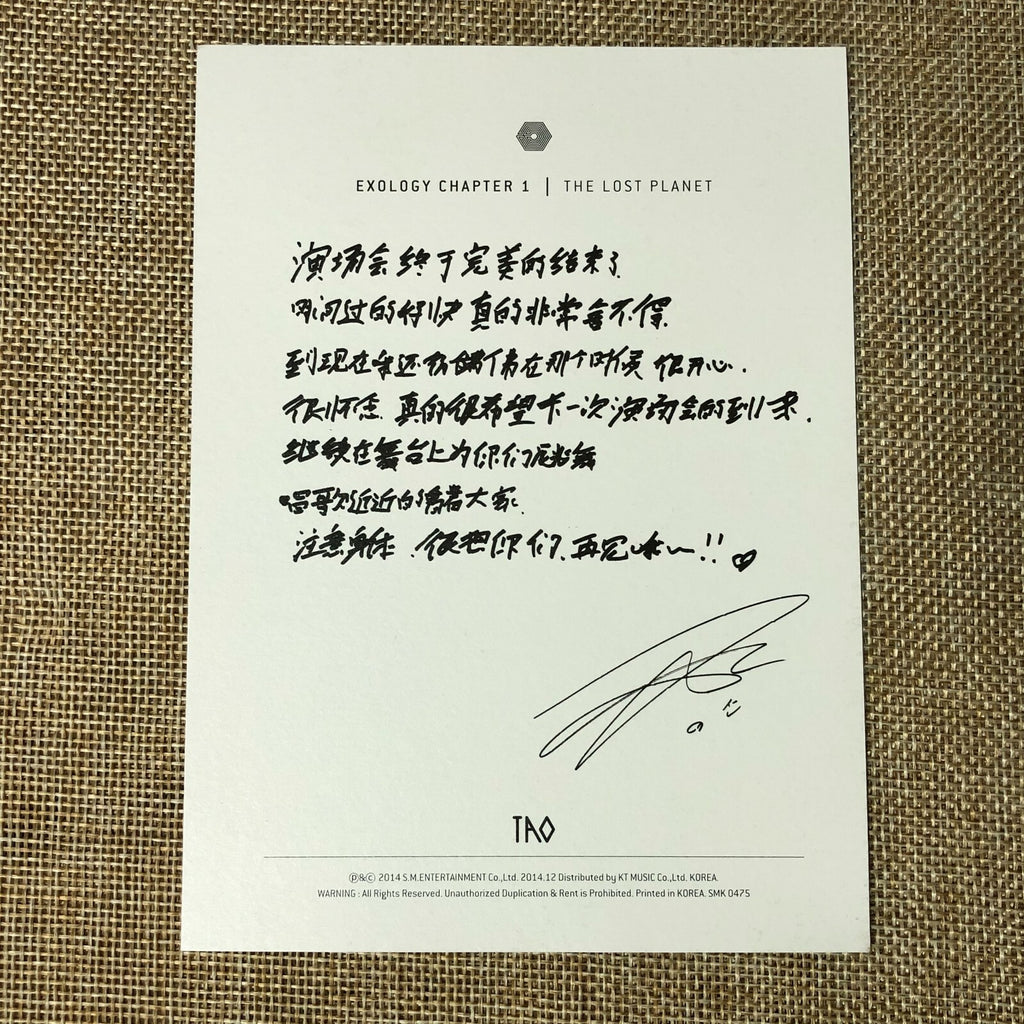 EXOLOGY CHAPTER 1 | THE LOST PLANET
演场会终于完美的结束了
时间过的很快 真的非常舍不得
到现在我还在 在那个时候 很开心.
很怀念 真的很希望下一次演场会的到来.
继续在舞台上为你们跳舞
唱歌 近近的 着大家.
注意身体. 很想你们. 再见 ~!! ♡
TAO
℗&© 2014 S.M.ENTERTAINMENT Co.,Ltd. 2014.12 Distributed by KT MUSIC Co.,Ltd. KOREA.
WARNING : All Rights Reserved. Unauthorized Duplication & Rent is Prohibited. Printed in KOREA. SMK 0475